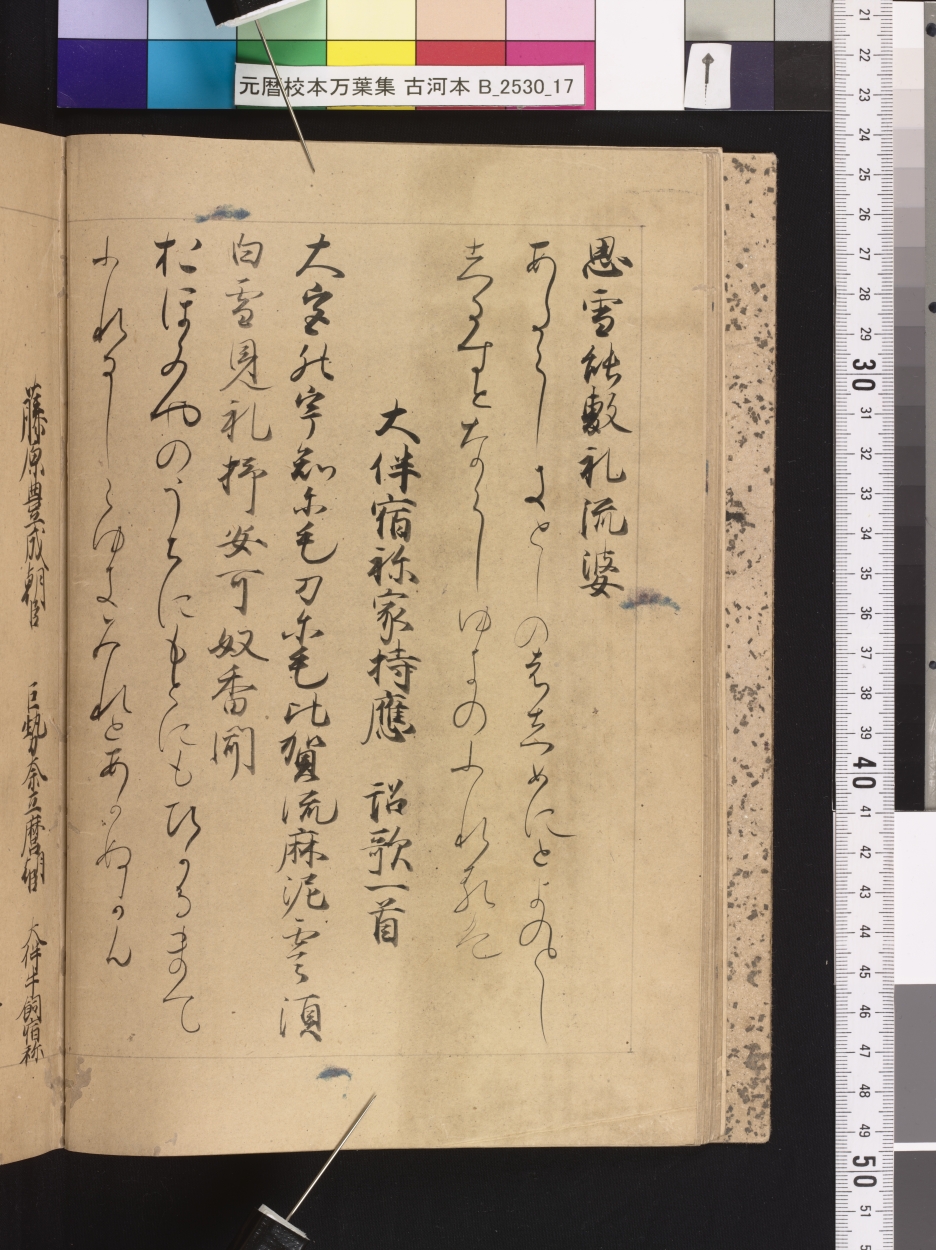 元暦校本万葉集 古河本 B_2530_17
思雪能敷礼流婆
あたらしきとしのはしめにとよのとし
しるすとならしゆきのふれるは
大伴宿祢家持應 詔歌一首
大宮能宇知尓毛刀尓毛比賀流麻泥零須
白雪見礼杼安可奴香聞
おほみやのうちにもとにもひかるまて
ふれるしらゆきみれとあかぬかも
藤原豊成朝臣 巨勢奈弖麿朝臣 大伴牛飼宿祢